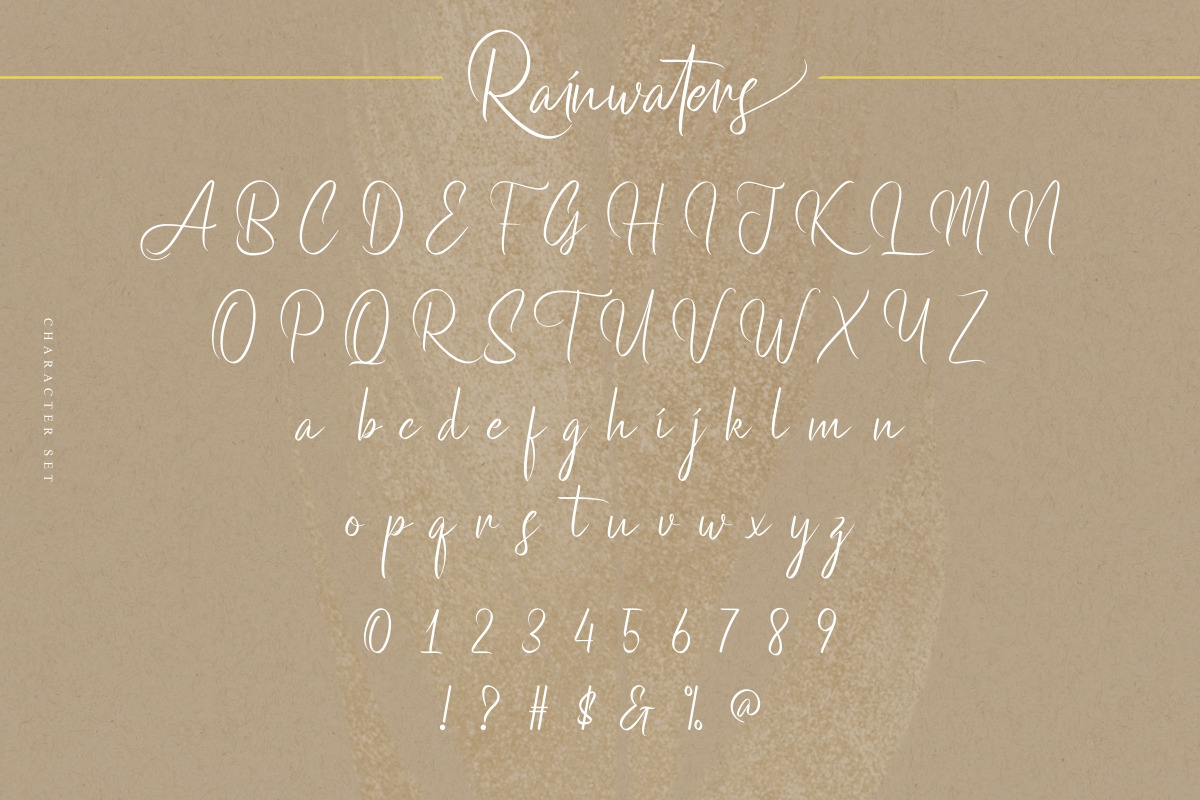 Rainwaters
A B C D E F G H I J K L M N
O P Q R S T U V W X Y Z
CHARACTER SET
a b c d e f g h i j k l m n
o p q r s t u v w x y z
0 1 2 3 4 5 6 7 8 9
! ? # $ & % @